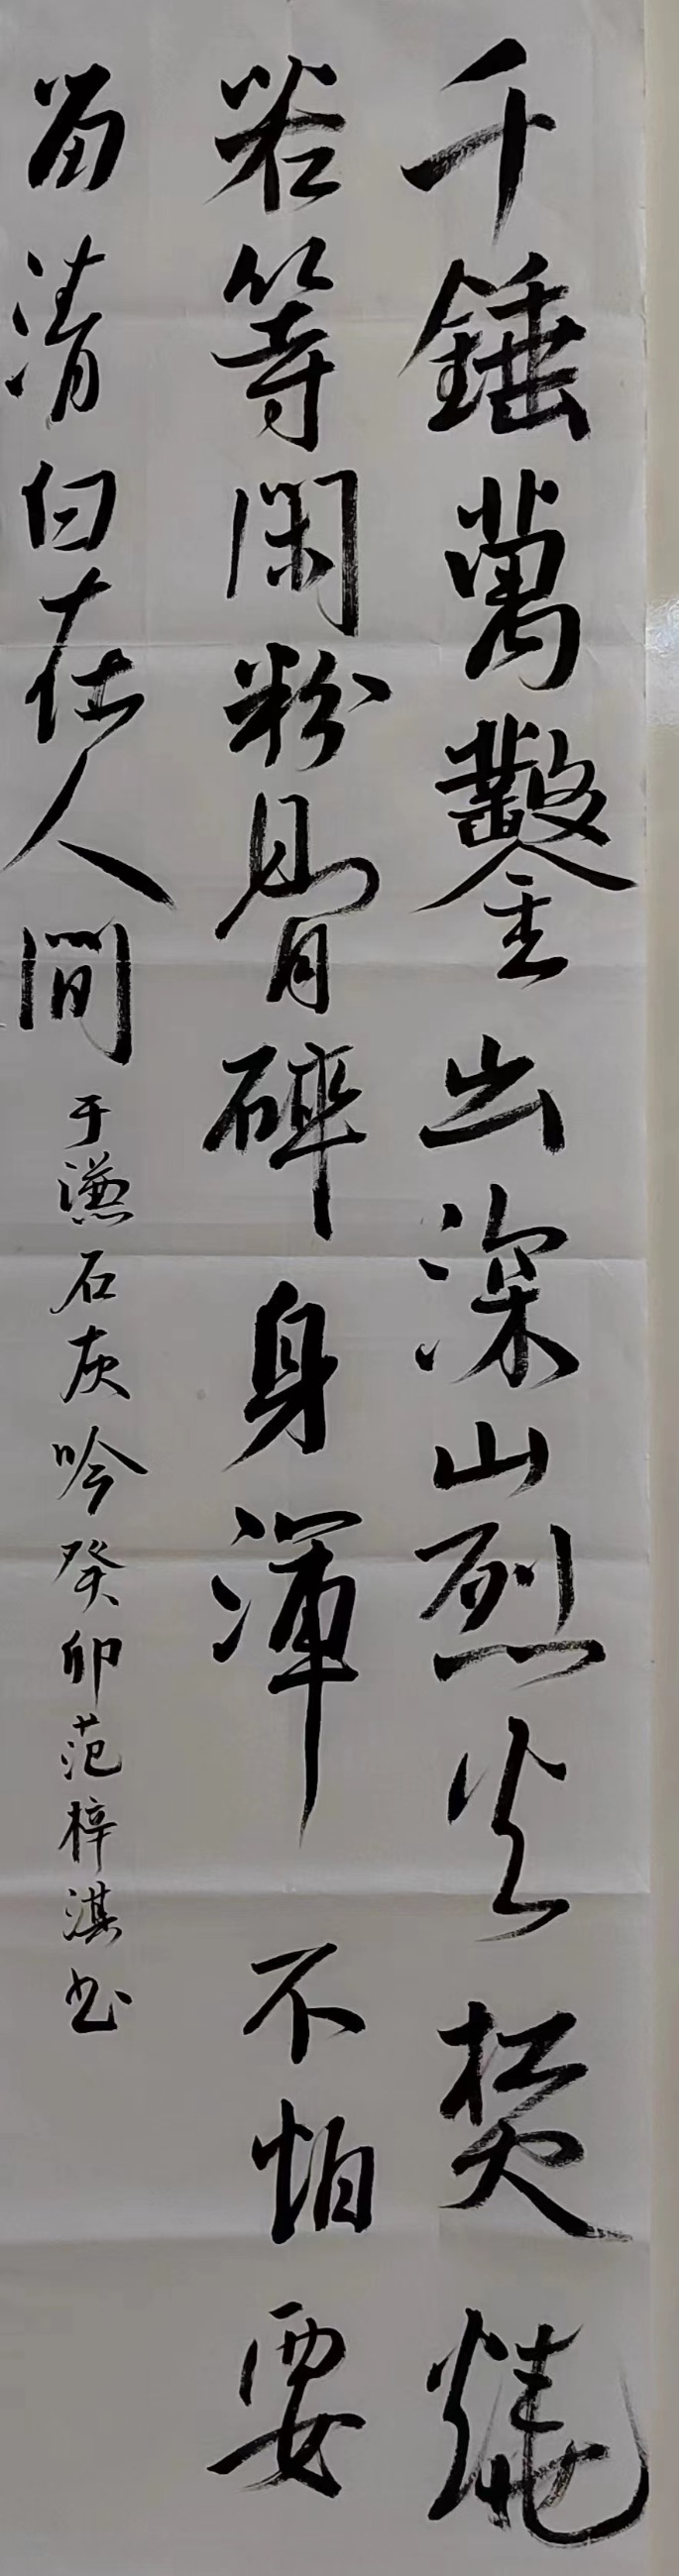 千錘萬鑿出深山烈火焚燒
若等閑粉骨碎身渾不怕要
留清白在人間于謙石灰吟癸卯范梓淇书